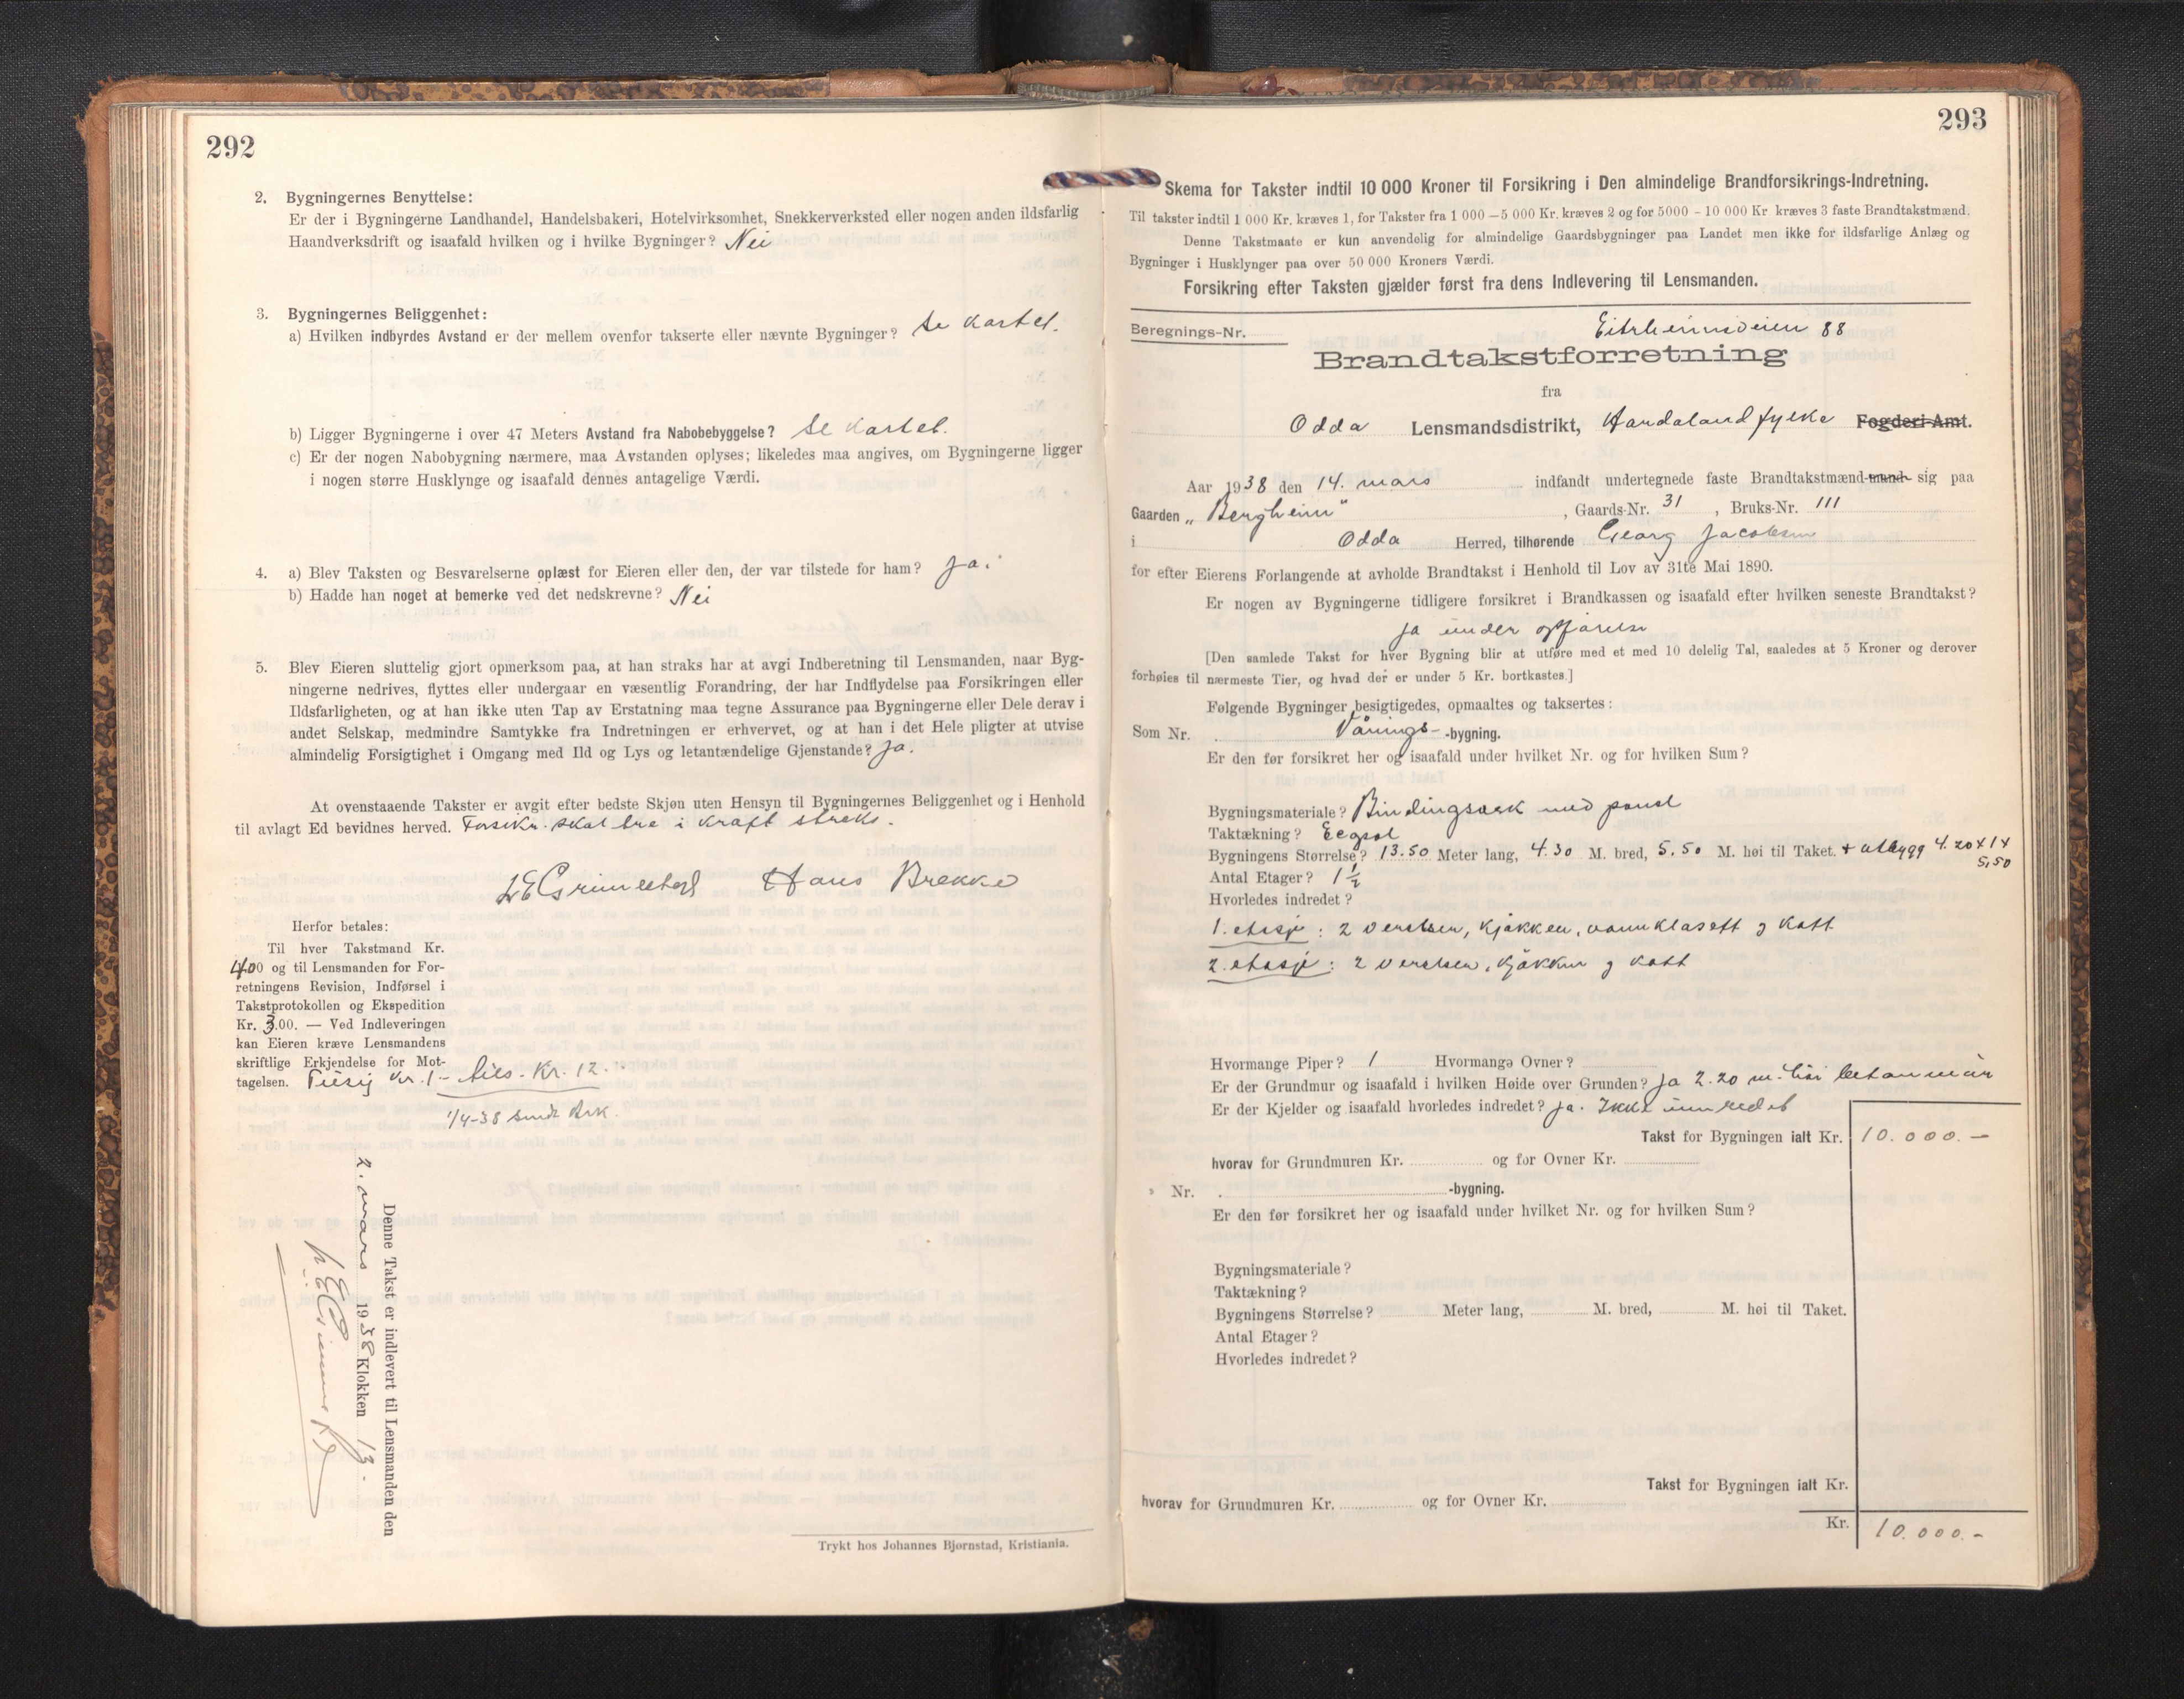 292
2. Bygningernes Benyttelse:
Er der i Bygningerne Landhandel, Handelsbakeri, Hotelvirksomhet, Snekkerverksted eller nogen anden ildsfarlig
Haandverksdrift og isaafald hvilken og i hvilke Bygninger? Nei
3. Bygningernes Beliggenhet:
a) Hvilken indbyrdes Avstand er der mellem ovenfor takserte eller nævnte Bygninger? Se kartet.
b) Ligger Bygningerne i over 47 Meters Avstand fra Nabobebyggelse? Se kartet.
c) Er der nogen Nabobygning nærmere, maa Avstanden oplyses; likeledes maa angives, om Bygningerne ligger
i nogen større Husklynge og isaafald dennes antagelige Værdi.
4. a) Blev Taksten og Besvarelserne oplæst for Eieren eller den, der var tilstede for ham? Ja.
b) Hadde han noget at bemerke ved det nedskrevne? Nei
5. Blev Eieren sluttelig gjort opmerksom paa, at han straks har at avgi Indberetning til Lensmanden, naar Byg-
ningerne nedrives, flyttes eller undergaar en væsentlig Forandring, der har Indflydelse paa Forsikringen eller
Ildsfarligheten, og at han ikke uten Tap av Erstatning maa tegne Assurance paa Bygningerne eller Dele derav i
andet Selskap, medmindre Samtykke fra Indretningen er erhvervet, og at han i det Hele pligter at utvise
almindelig Forsigtighet i Omgang med Ild og Lys og letantændelige Gjenstande? Ja.
At ovenstaaende Takster er avgit efter bedste Skjøn uten Hensyn til Bygningernes Beliggenhet og i Henhold
til avlagt Ed bevidnes herved. Forsikr. skal tre i kraft straks.
Hans Brekke
Herfor betales:
Til hver Takstmand Kr.
4.00 og til Lensmanden for For-
retningens Revision, Indførsel i
Takstprotokollen og Ekspedition
Kr. 3.00. — Ved Indleveringen
kan Eieren kræve Lensmandens
skriftlige Erkjendelse for Mot-
tagelsen. kr. 1 - Tils. Kr. 12.-
1/4-38 sendt Brk.
Denne Takst er indlevert til Lensmanden den
2. mars 1938 Klokken 13.
Trykt hos Johannes Bjørnstad, Kristiania.
293
Skema for Takster indtil 10 000 Kroner til Forsikring i Den almindelige Brandforsikrings-Indretning.
Til takster indtil 1 000 Kr. kræves 1, for Takster fra 1 000 — 5 000 Kr. kræves 2 og for 5000 - 10 000 Kr kræves 3 faste Brandtakstmænd.
Denne Takstmaate er kun anvendelig for almindelige Gaardsbygninger paa Landet men ikke for ildsfarlige Anlæg og
Bygninger i Husklynger paa over 50 000 Kroners Værdi.
Forsikring efter Taksten gjælder først fra dens Indlevering til Lensmanden.
Beregnings-Nr. Eitrheimsveien 88
Brandtakstforretning
fra
Odda Lensmandsdistrikt, Hordaland fylke Fogderi Amt.
Aar 1938 den 14. mars indfandt undertegnede faste Brandtakstmænd-mand- sig paa
Gaarden „ Bergheim" , Gaards-Nr. 31 , Bruks-Nr. 111
i Odda Herred, tilhørende Georg Jacobsen
for efter Eierens Forlangende at avholde Brandtakst i Henhold til Lov av 31te Mai 1890.
Er nogen av Bygningerne tidligere forsikret i Brandkassen og isaafald efter hvilken seneste Brandtakst?
Ja under opførelse
[Den samlede Takst for hver Bygning blir at utføre med et med 10 delelig Tal, saaledes at 5 Kroner og derover
forhøies til nærmeste Tier, og hvad der er under 5 Kr. bortkastes.]
Følgende Bygninger besigtigedes, opmaaltes og taksertes:
Som Nr. Vånings- -bygning.
Er den før forsikret her og isaafald under hvilket Nr. og for hvilken Sum?
Bygningsmateriale? Bindingsverk med panel
Taktækning?
Bygningens Størrelse? 13.50 Meter lang, 4.30 M. bred, 5.50 M. høi til Taket. + utbygg 4.20 x 1 x
5,50
Antal Etager? 1 1/2
Hvorledes indredet?
1. etasje: 2 værelser, kjøkken, vannklosett og kott
2. etasje: 2 værelser, kjøkken og kott
Hvormange Piper? 1 Hvormange Ovner?
Er der Grundmur og isaafald i hvilken Høide over Grunden? Ja 2.20 m. høi betonmur
Er der Kjelder og isaafald hvorledes indredet? Ja. Ikke innredet
Takst for Bygningen ialt Kr. 10.000.-
hvorav for Grundmuren Kr. og for Ovner Kr.
» Nr. -bygning.
Er den før forsikret her og isaafald under hvilket Nr. og for hvilken Sum?
Bygningsmateriale?
Taktækning?
Bygningens Størrelse? Meter lang, M. bred, M. høi til Taket.
Antal Etager?
Hvorledes indredet?
Takst for Bygningen ialt Kr.
hvorav for Grundmuren Kr. og for Ovner Kr.
Kr. 10.000.-